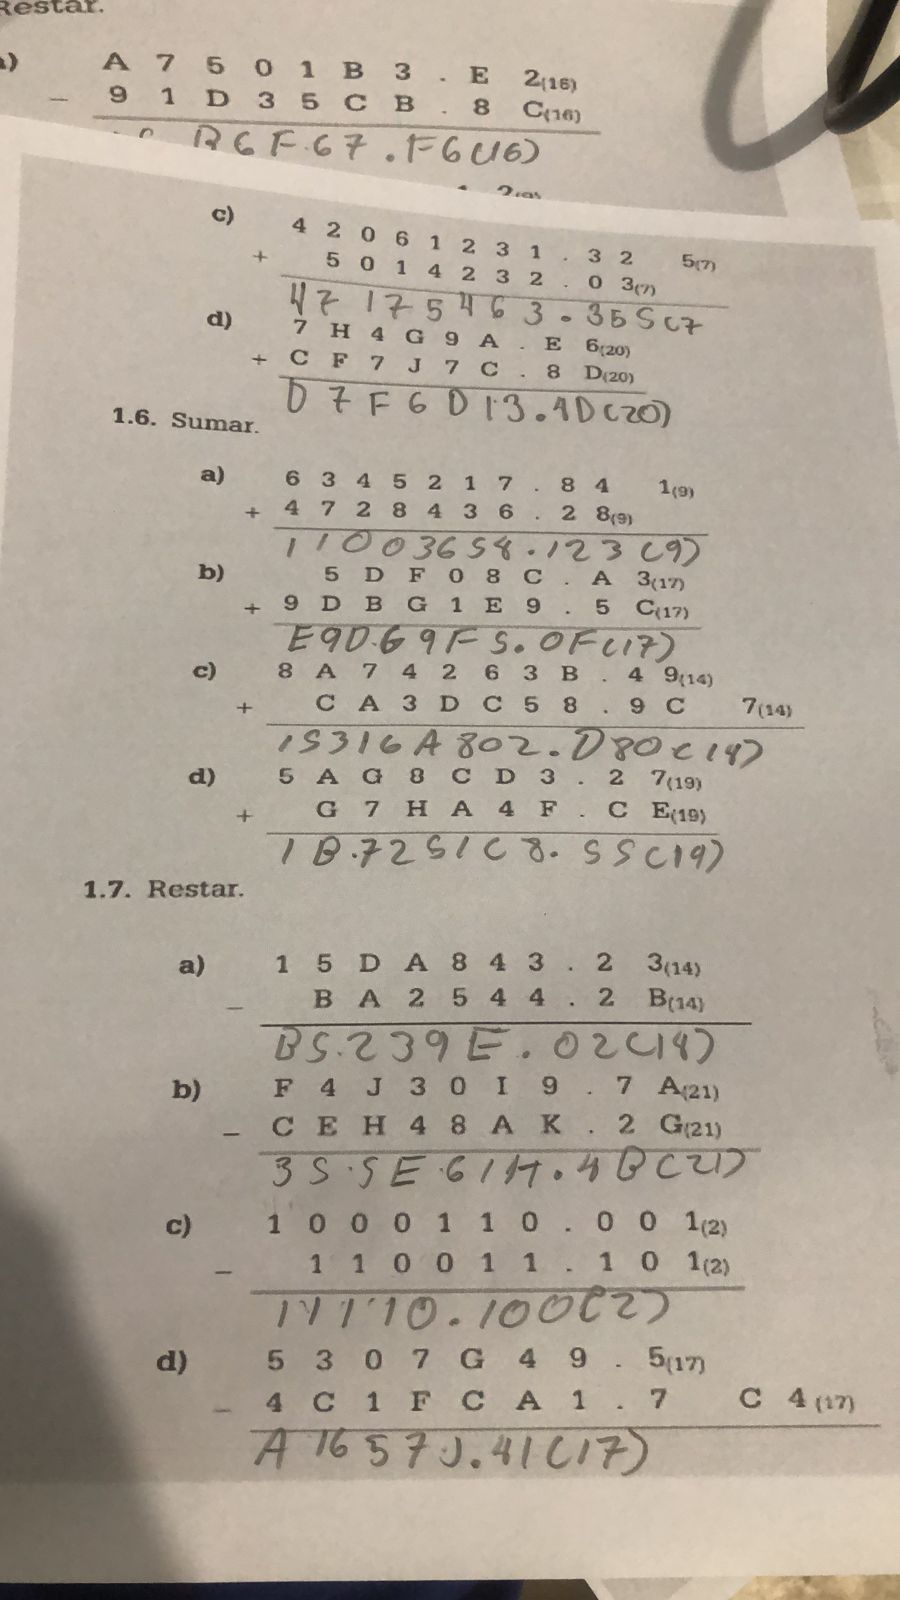 Restar.
a) A 7 5 0 1 B 3 . E 2(16)
− 9 1 D 3 5 C B . 8 C(16)
B6F.67.F6(16)
c) 4 2 0 6 1 2 3 1 . 3 2 5(7)
+ 5 0 1 4 2 3 2 . 0 3(7)
47175463.355(7
d) 7 H 4 G 9 A . E 6(20)
+ C F 7 J 7 C . 8 D(20)
D7F6D13.4D(20)
1.6. Sumar.
a) 6 3 4 5 2 1 7 . 8 4 1(9)
+ 4 7 2 8 4 3 6 . 2 8(9)
11003658.123(9)
b) 5 D F 0 8 C . A 3(17)
+ 9 D B G 1 E 9 . 5 C(17)
E9D.69F5.0F(17)
c) 8 A 7 4 2 6 3 B . 4 9(14)
+ C A 3 D C 5 8 . 9 C 7(14)
15316A802.D80(14)
d) 5 A G 8 C D 3 . 2 7(19)
+ G 7 H A 4 F . C E(19)
1B.7251C8.55(19)
1.7. Restar.
a) 1 5 D A 8 4 3 . 2 3(14)
− B A 2 5 4 4 . 2 B(14)
B5.239E.02(14)
b) F 4 J 3 0 I 9 . 7 A(21)
− C E H 4 8 A K . 2 G(21)
35.5E.61H.4B(21)
c) 1 0 0 0 1 1 0 . 0 0 1(2)
− 1 1 0 0 1 1 . 1 0 1(2)
11110.100(2)
d) 5 3 0 7 G 4 9 . 5(17)
− 4 C 1 F C A 1 . 7 C 4(17)
A1657J.41(17)